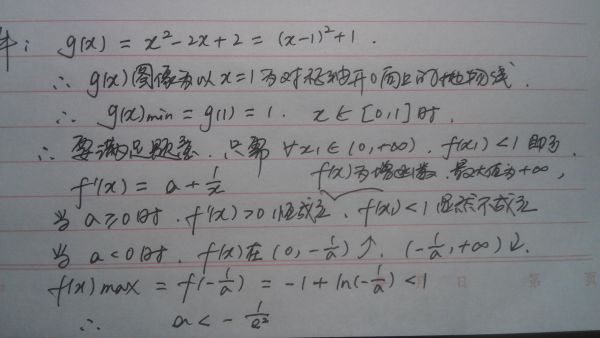 解: g(x) = x²-2x+2 = (x-1)²+1.
∴ g(x)图像为以x=1为对称轴开口向上的抛物线.
∴ g(x)min = g(1) = 1. x∈[0,1]时.
∴ 要满足题意, 只需 ∀x₁∈(0,+∞), f(x₁)<1 即可.
f'(x) = a + 1/x f(x)为增函数, 最大值为+∞,
当 a≥0时, f'(x)>0恒成立, f(x)<1显然不成立
当 a<0时, f(x)在(0,-1/a)↑, (-1/a,+∞)↓.
f(x)max = f(-1/a) = -1+ln(-1/a) <1
∴ a < -1/e²